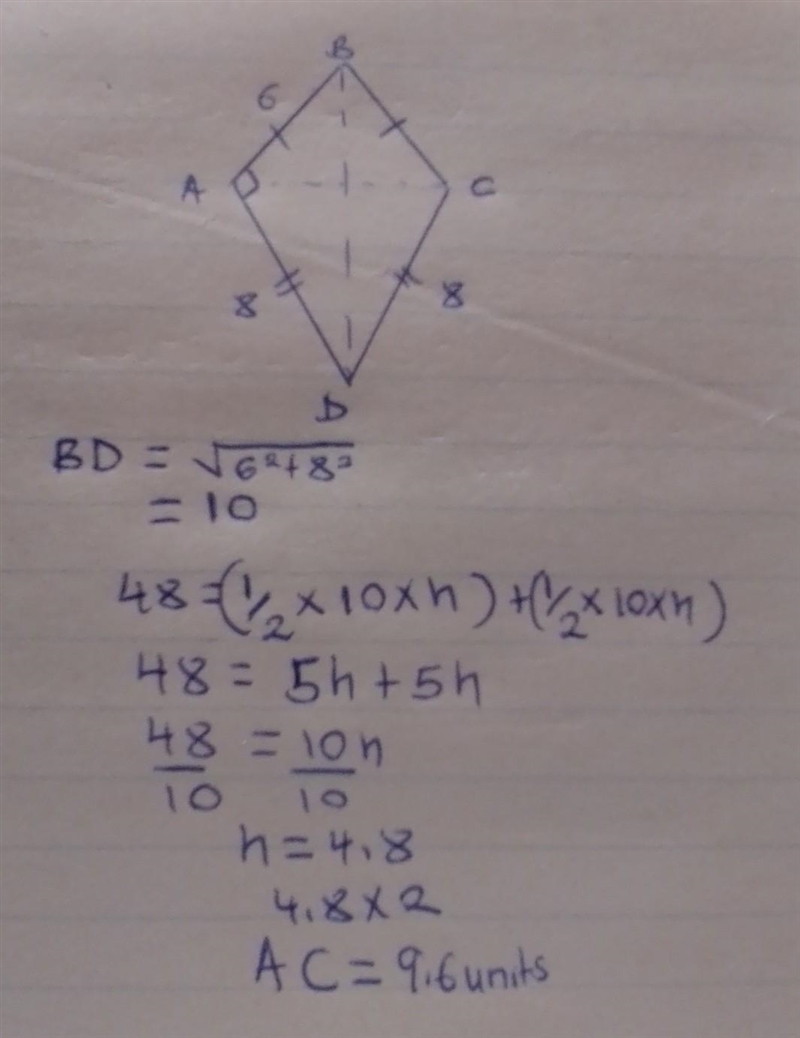 B
6
A C
8 8
D
BD = √6²+8²
= 10
48 = (1/2 × 10 × h) + (1/2 × 10 × h)
48 = 5h + 5h
48/10 = 10h/10
h = 4.8
4.8 × 2
AC = 9.6 units